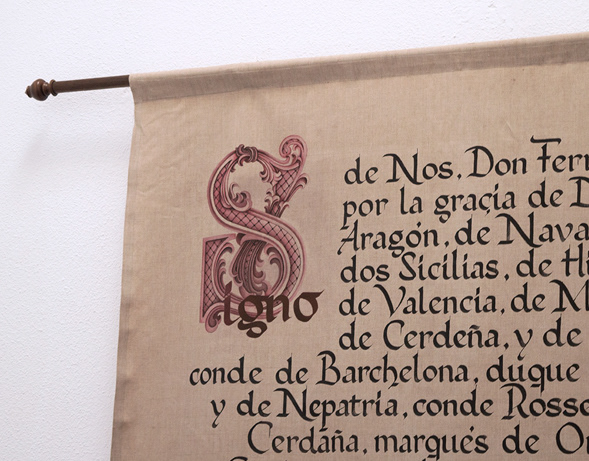 Signo
de Nos, Don Ferr
por la graçia de D
Aragón, de Nava
dos Sicilias, de Hi
de Valencia, de M
de Cerdeña, y de
conde de Barchelona, duque
y de Nepatria, conde Rosse
Cerdaña, marqués de Or